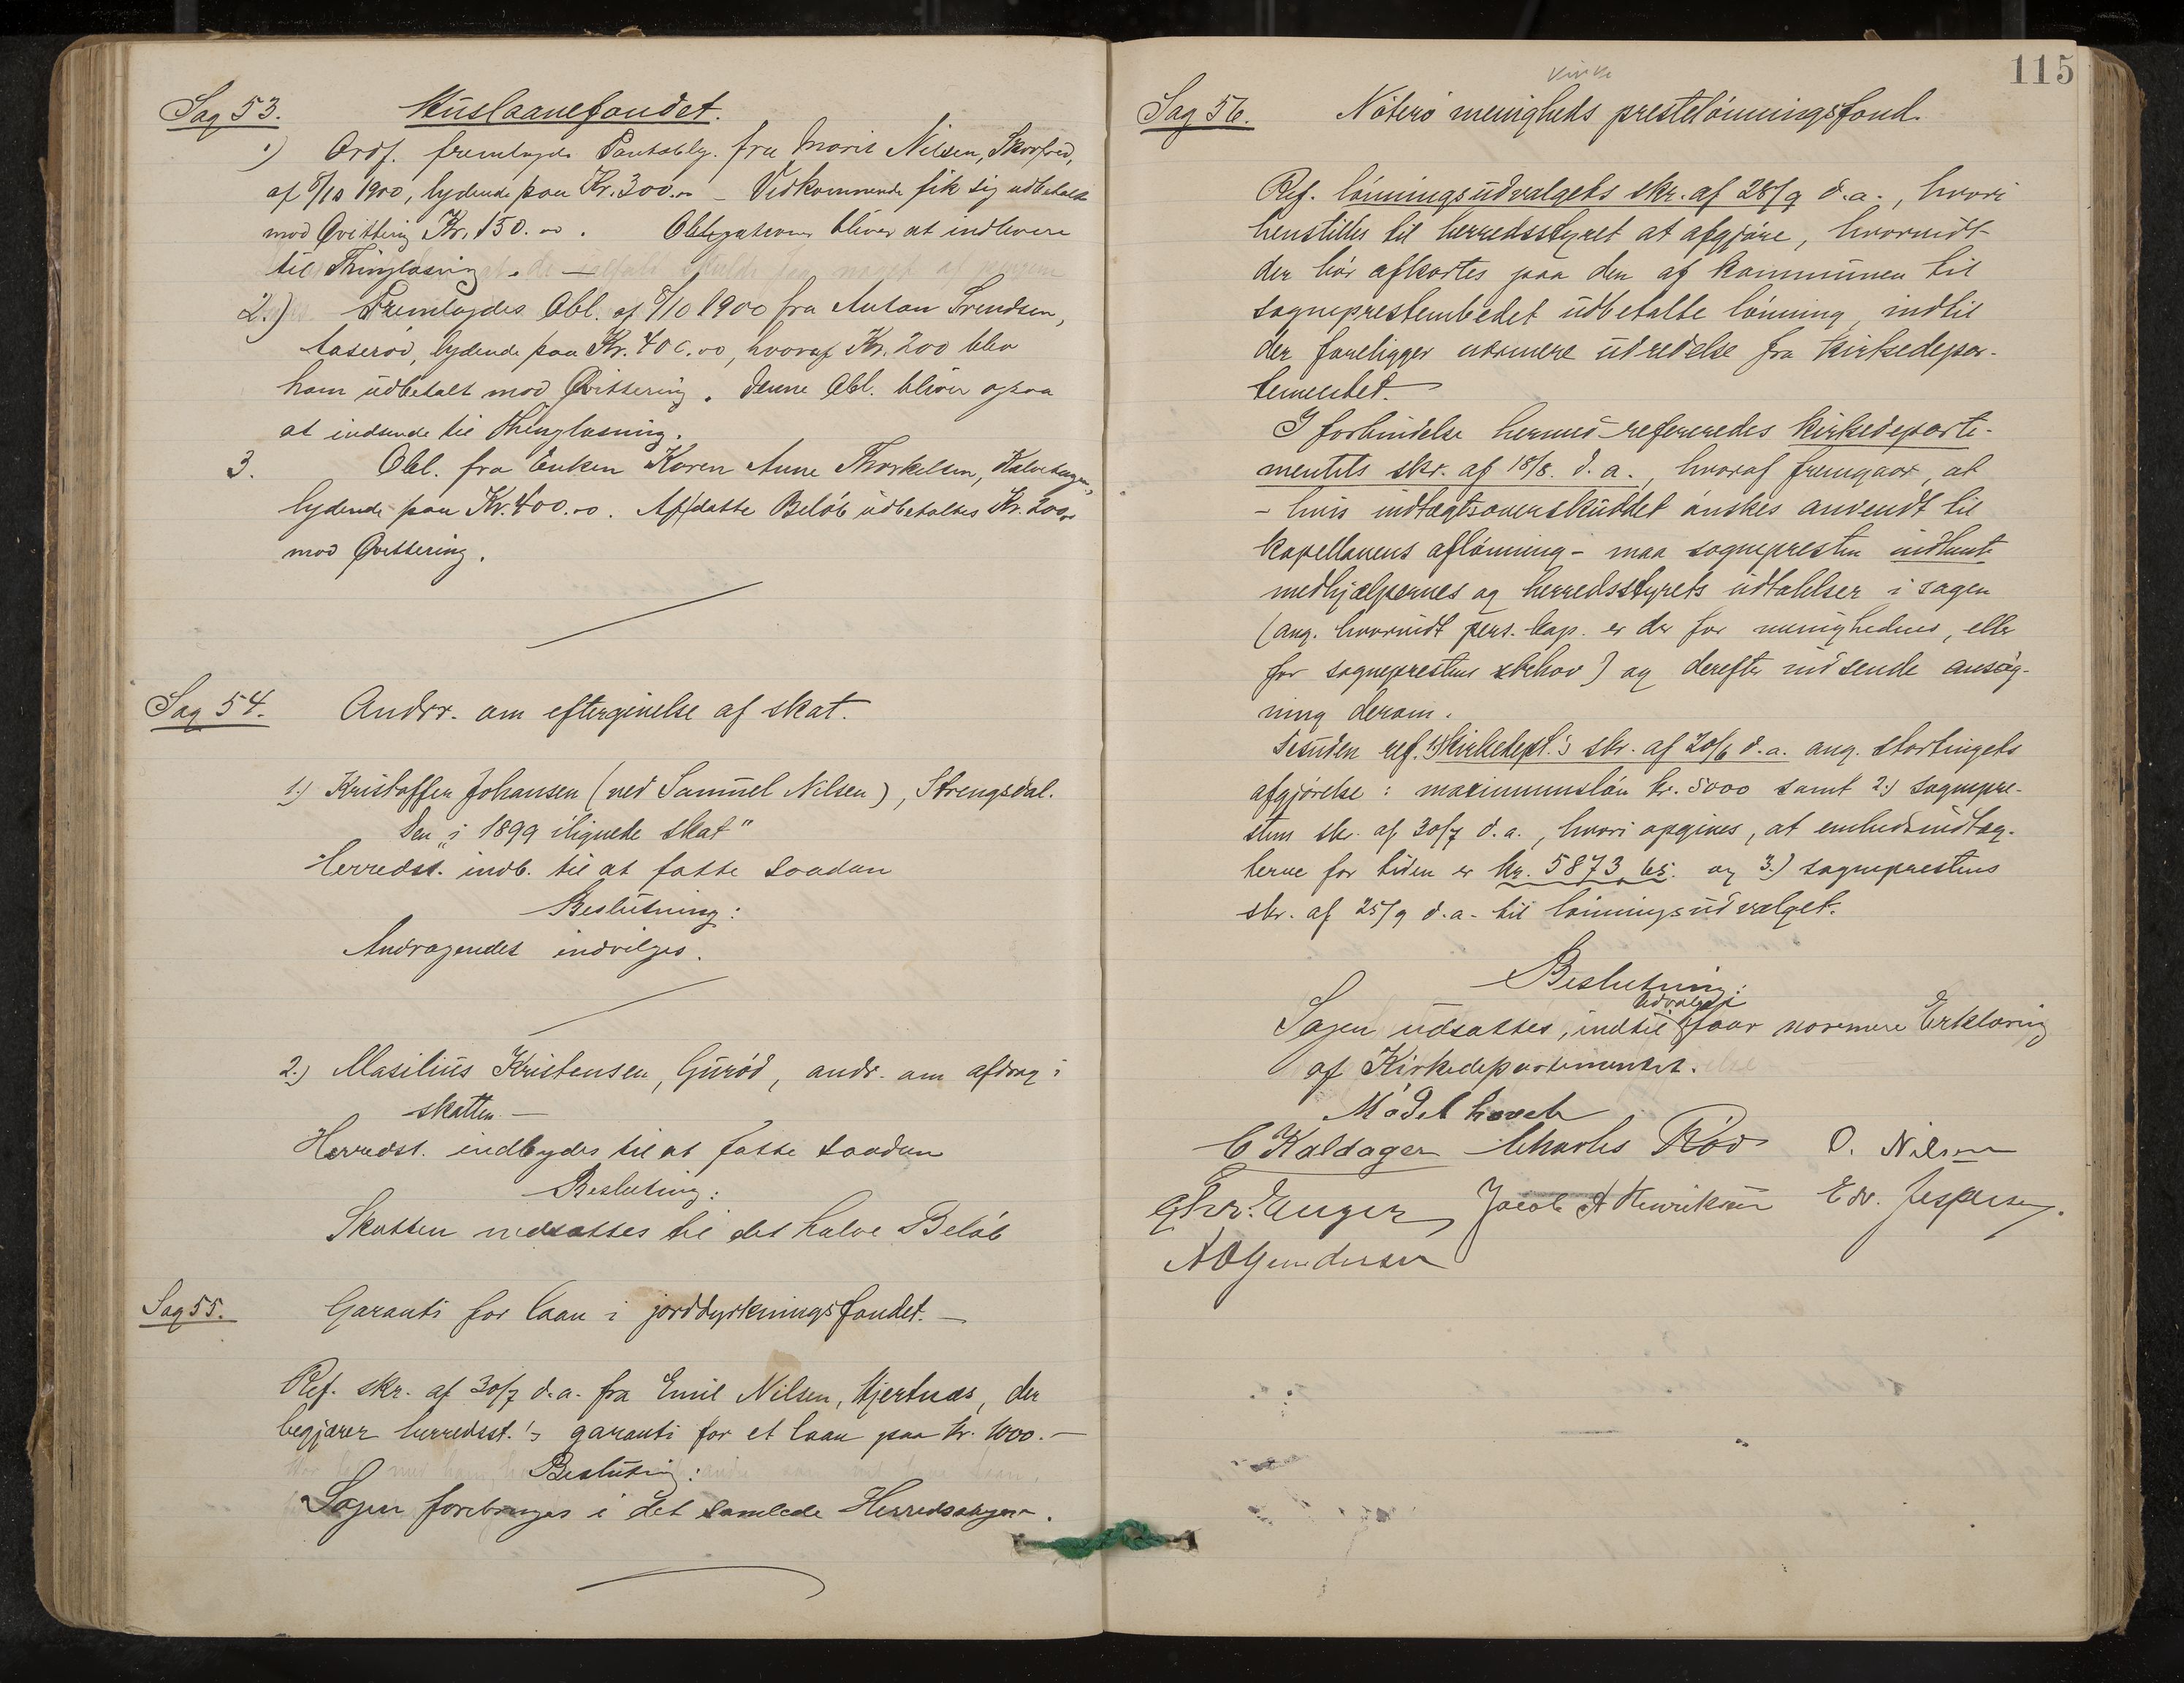 Sag 53. Huslaanefondet.
1) Ordf. fremlagde Pantobly. fra Marie Nilsen,
af 8/10 1900, lydende paa Kr. 300.00 – Vedkommende fik sig udbetalt
mod Qvittering Kr. 150.00. Obligationen bliver at indlevere
til Thinglæsning. —
2.) Fremlagdes Obl. af 8/10 1900 fra Anton Svendsen,
lydende paa Kr. 400.00, hvoraf Kr. 200 blev
ham udbetalt mod Qvittering. Denne Obl. bliver ogsaa
at indsende til Thinglæsning.
3. Obl. fra Enken Karen Anne Thorkelsen,
lydende paa Kr. 400.00. Af dette Beløb udbetaltes Kr. 200.00
mod Qvittering.
Sag 54. Andr. om eftergivelse af skat.
1.) Kristoffer Johansen (ved Samuel Nilsen), Strengsdal.
Den „i 1899 ilignede skat"
Herredsst. indb. til at fatte saadan
Beslutning:
Andragendet indvilges.
2.) Masilius Kristensen, Gurød, andr. om afdrag i
skatten —
Herredst. indbydes til at fatte saadan
Beslutning:
Skatten nedsattes til det halve Beløb
Sag 55. Garanti for laan i jorddyrkningsfondet. —
Ref. skr. af 30/7 d.a. fra Emil Nilsen, Hjertnæs, der
begjærer herredsst.'s garanti for et laan paa kr. 1000.—
Beslutning:
Sagen forebringes i det samlede Herredsstyre.
115
kirke
Sag 56. Nøterø menigheds prestelønningsfond.
Ref. lønningsudvalgets skr. af 28/9 d.a., hvori
henstilles til herredsstyret at afgjøre, hvorvidt
der bør afkortes paa den af kommunen til
sogneprestembedet udbetalte lønning, indtil
der foreligger nærmere udredelse fra Kirkedepar-
tementet.
I forbindelse hermed refereredes Kirkedeparte-
mentets skr. af 18/8. d.a., hvoraf fremgaar, at
– hvis indtægtsoverskuddet ønskes anvendt til
kapellanens aflønning – maa sognepresten indhente
medhjælpernes og herredsstyrets udtalelser i sagen
(ang. hvorvidt pers. kap. er der for menighedens, eller
for sogneprestens behov) og derefter indsende ansøg-
ning derom.
Desuden ref. 1) Kirkedept.'s skr. af 20/6 d.a. ang. stortingets
afgjørelse: maximumsløn kr. 5000 samt 2.) sognepre-
stens skr. af 30/7 d.a., hvori opgives, at embedsindtæg-
terne for tiden er kr. 5873,65. og 3.) sogneprestens
skr. af 25/9 d.a. til lønningsudvalget.
Beslutning:
Udvalget
Sagen udsættes, indtil faar nærmere Erklæring
af Kirkedepartementet.
Mødet hævet
C Kaldager Charles Rød O. Nilsen
Chr. Enger Jacob A Henriksen Edv. Jespersen.
A O Gundersen